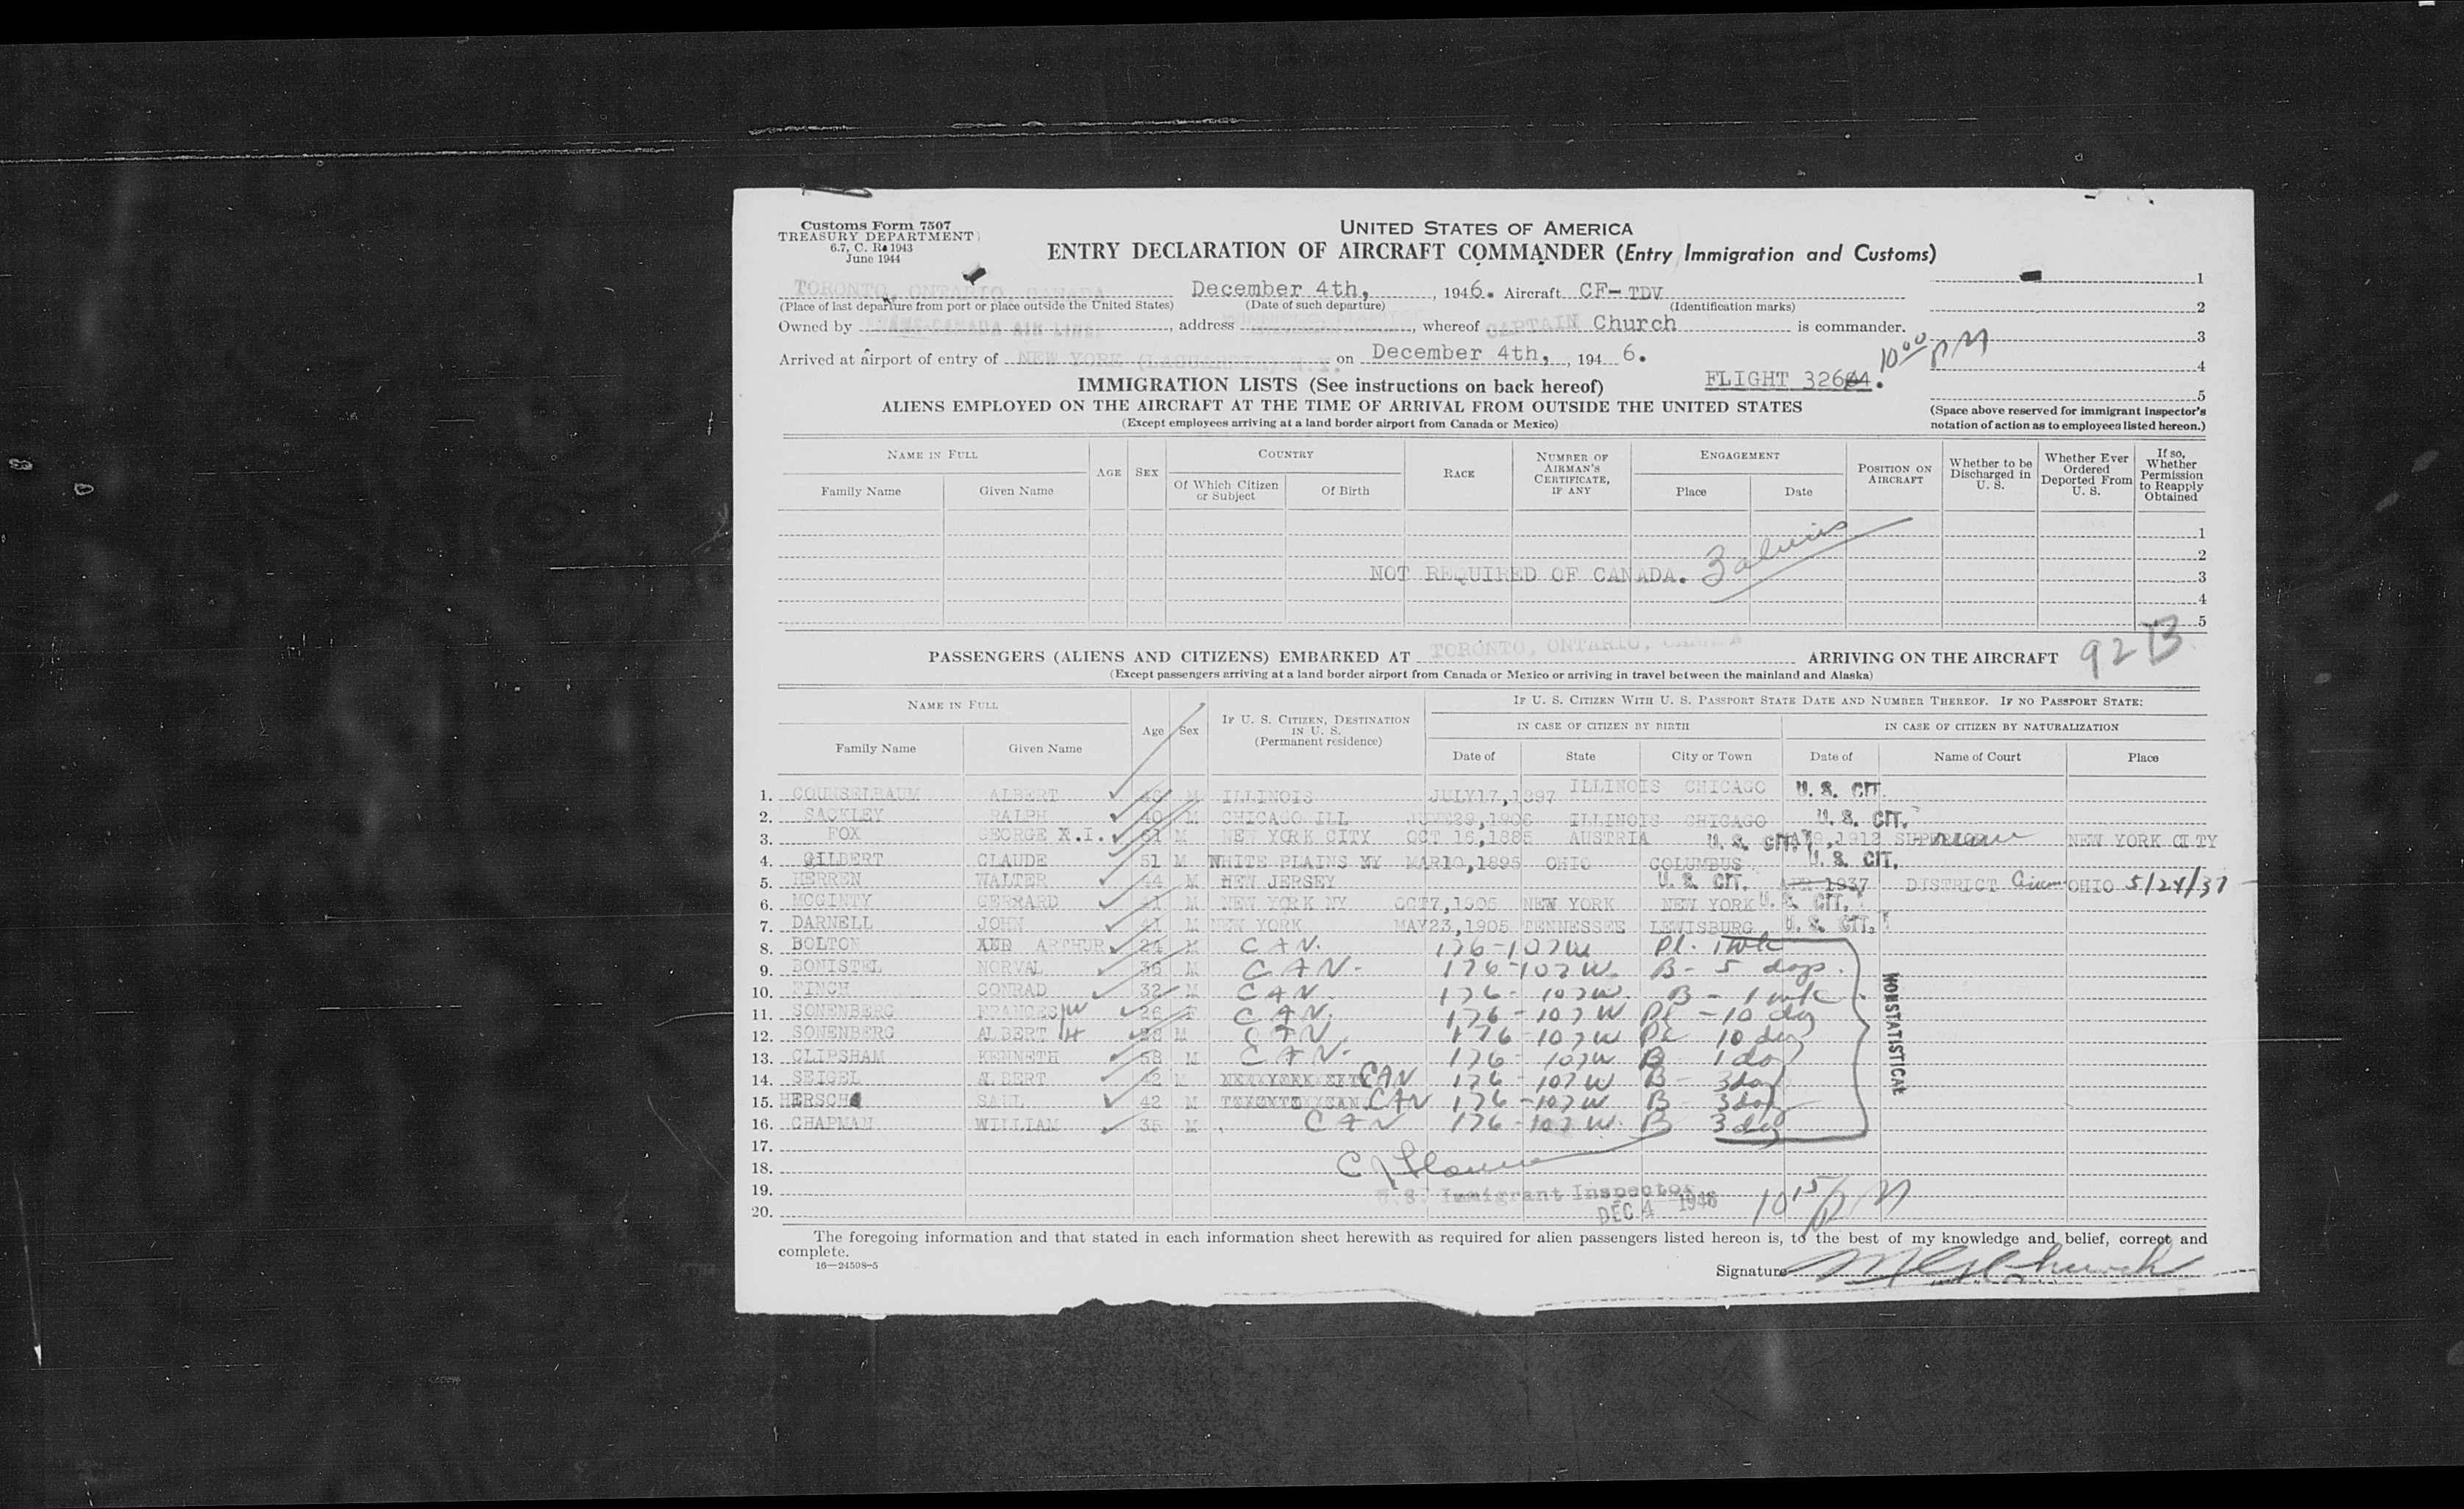 Customs Form 7507
TREASURY DEPARTMENT
6.7, C. R. 1943
June 1944
UNITED STATES OF AMERICA
ENTRY DECLARATION OF AIRCRAFT COMMANDER (Entry Immigration and Customs)
TORONTO, ONTARIO, CANADA December 4th, , 1946. Aircraft CF-TDV
(Place of last departure from port or place outside the United States) (Date of such departure) (Identification marks)
Owned by TRANS-CANADA AIR LINES , address , whereof CAPTAIN Church is commander.
Arrived at airport of entry of NEW YORK (LAGUARDIA) N.Y. on December 4th, , 194 6.
10 00 PM
1
2
3
4
5
IMMIGRATION LISTS (See instructions on back hereof) FLIGHT 3264.
ALIENS EMPLOYED ON THE AIRCRAFT AT THE TIME OF ARRIVAL FROM OUTSIDE THE UNITED STATES
(Except employees arriving at a land border airport from Canada or Mexico)
(Space above reserved for immigrant inspector's notation of action as to employees listed hereon.)
NAME IN FULL
Family Name Given Name
AGE SEX
COUNTRY
Of Which Citizen or Subject Of Birth
RACE
NUMBER OF AIRMAN'S CERTIFICATE, IF ANY
ENGAGEMENT
Place Date
POSITION ON AIRCRAFT
Whether to be Discharged in U. S.
Whether Ever Ordered Deported From U. S.
If so, Whether Permission to Reapply Obtained
1
2
NOT REQUIRED OF CANADA. 3
4
5
PASSENGERS (ALIENS AND CITIZENS) EMBARKED AT TORONTO, ONTARIO, CANADA ARRIVING ON THE AIRCRAFT 92 B
(Except passengers arriving at a land border airport from Canada or Mexico or arriving in travel between the mainland and Alaska)
NAME IN FULL
Family Name Given Name
Age Sex
IF U. S. CITIZEN, DESTINATION IN U. S. (Permanent residence)
IF U. S. CITIZEN WITH U. S. PASSPORT STATE DATE AND NUMBER THEREOF. IF NO PASSPORT STATE:
IN CASE OF CITIZEN BY BIRTH IN CASE OF CITIZEN BY NATURALIZATION
Date of State City or Town Date of Name of Court Place
1. COUNSELBAUM ALBERT M ILLINOIS JULY17,1897 ILLINOIS CHICAGO U. S. CIT.
2. SACKLEY RALPH 40 M CHICAGO ILL JUNE29,1906 ILLINOIS CHICAGO U. S. CIT.
3. FOX GEORGE X.I. 61 M NEW YORK CITY OCT 16,1885 AUSTRIA U. S. CIT. ,1912 SUPERIOR NEW YORK CITY
4. GILDERT CLAUDE 51 M WHITE PLAINS NY MAR10,1895 OHIO COLUMBUS U. S. CIT.
5. HERREN WALTER 44 M NEW JERSEY U. S. CIT. APR 1937 DISTRICT OHIO 5/24/37
6. MCGINTY GERRARD 41 M NEW YORK NY OCT7,1905 NEW YORK NEW YORK U. S. CIT.
7. DARNELL JOHN 41 M NEW YORK MAY23,1905 TENNESSEE LEWISBURG U. S. CIT.
8. BOLTON ARTHUR 24 M CAN. 176-107W Pl. 1 wk
9. BONISTEL NORVAL 36 M CAN. 176-107W B - 5 days.
10. FINCH CONRAD 32 M CAN. 176-107W. B - 1 wk
11. SONENBERG FRANCES W 26 F CAN. 176-107W Pl - 10 day
12. SONENBERG ALBERT H 28 M CAN. 176-107W Pl 10 day
13. CLIPSHAM KENNETH 58 M CAN. 176-107W B 1 day
14. SEIGEL ALBERT 42 M CAN 176-107W B - 3 day
15. HERSCH SAUL 42 M CAN 176-107W B 3 day
16. CHAPMAN WILLIAM 35 M CAN 176-107W. B 3 day
NONSTATISTICAL
17.
18.
19. U.S. Immigrant Inspector
20. DEC 4 1946 10 15 PM
The foregoing information and that stated in each information sheet herewith as required for alien passengers listed hereon is, to the best of my knowledge and belief, correct and
complete.
16—24598-5
Signature